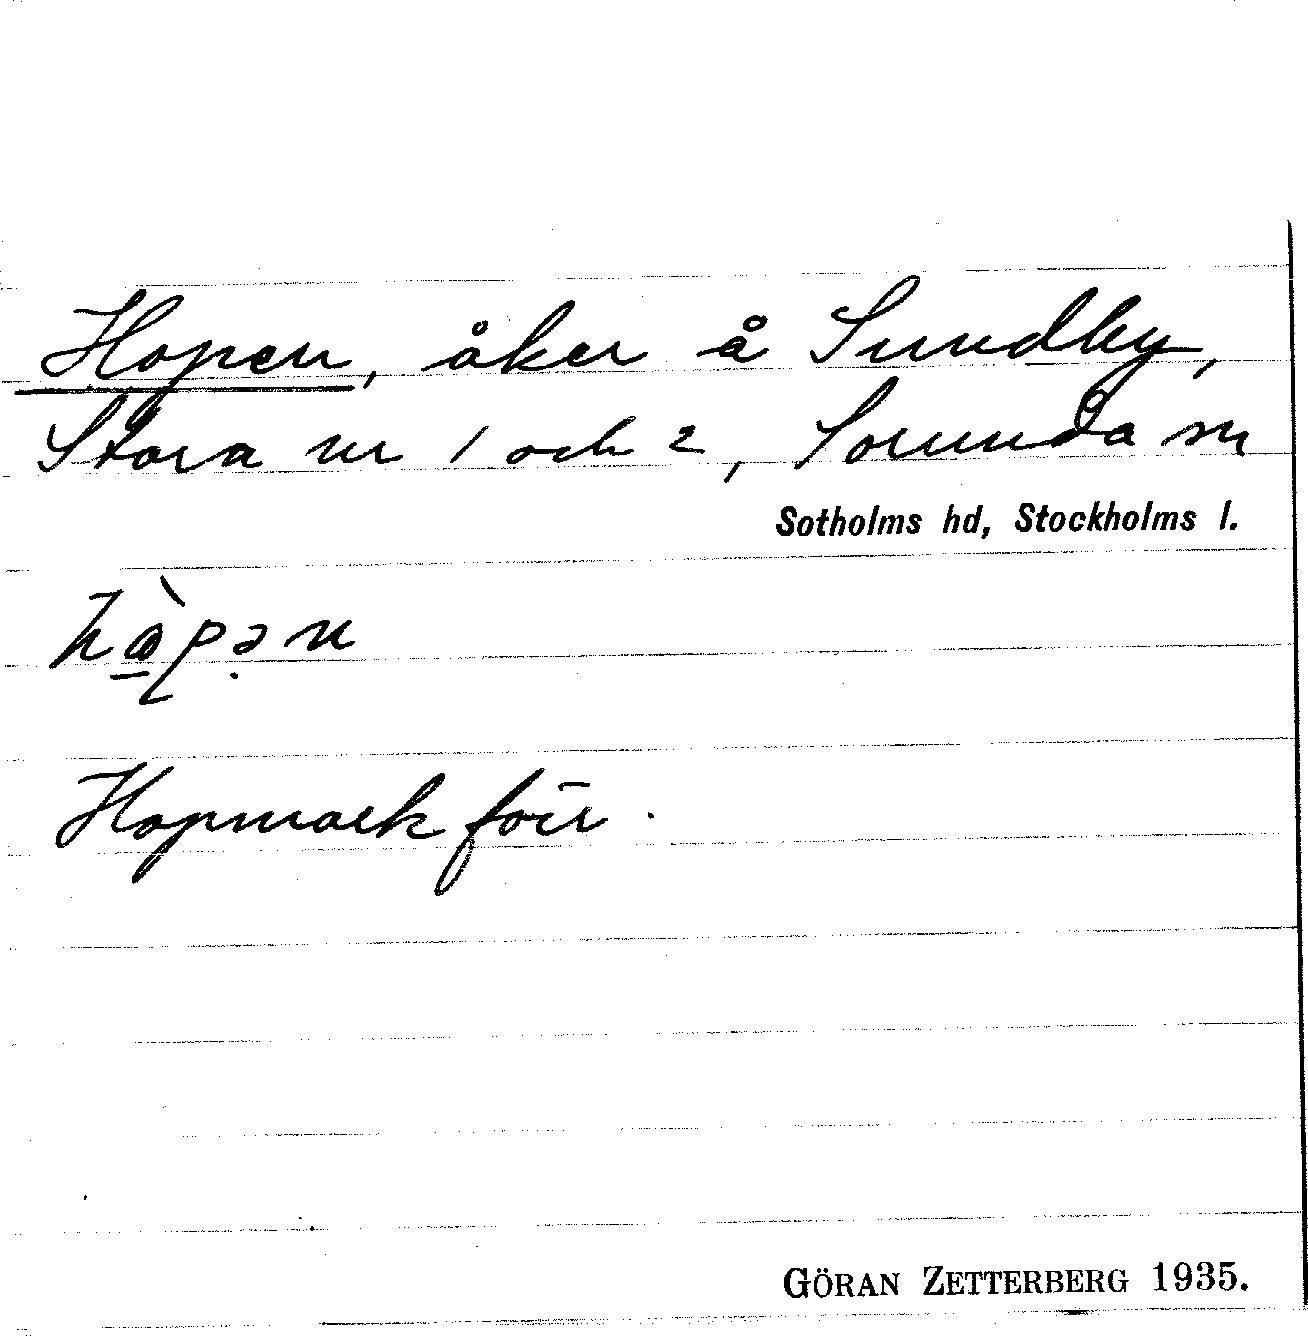 Hopen, åker å Sundby,
Stora nr 1 och 2, Sorunda sn
Sotholms hd, Stockholms l.
Hopmark för.
GÖRAN ZETTERBERG 1935.